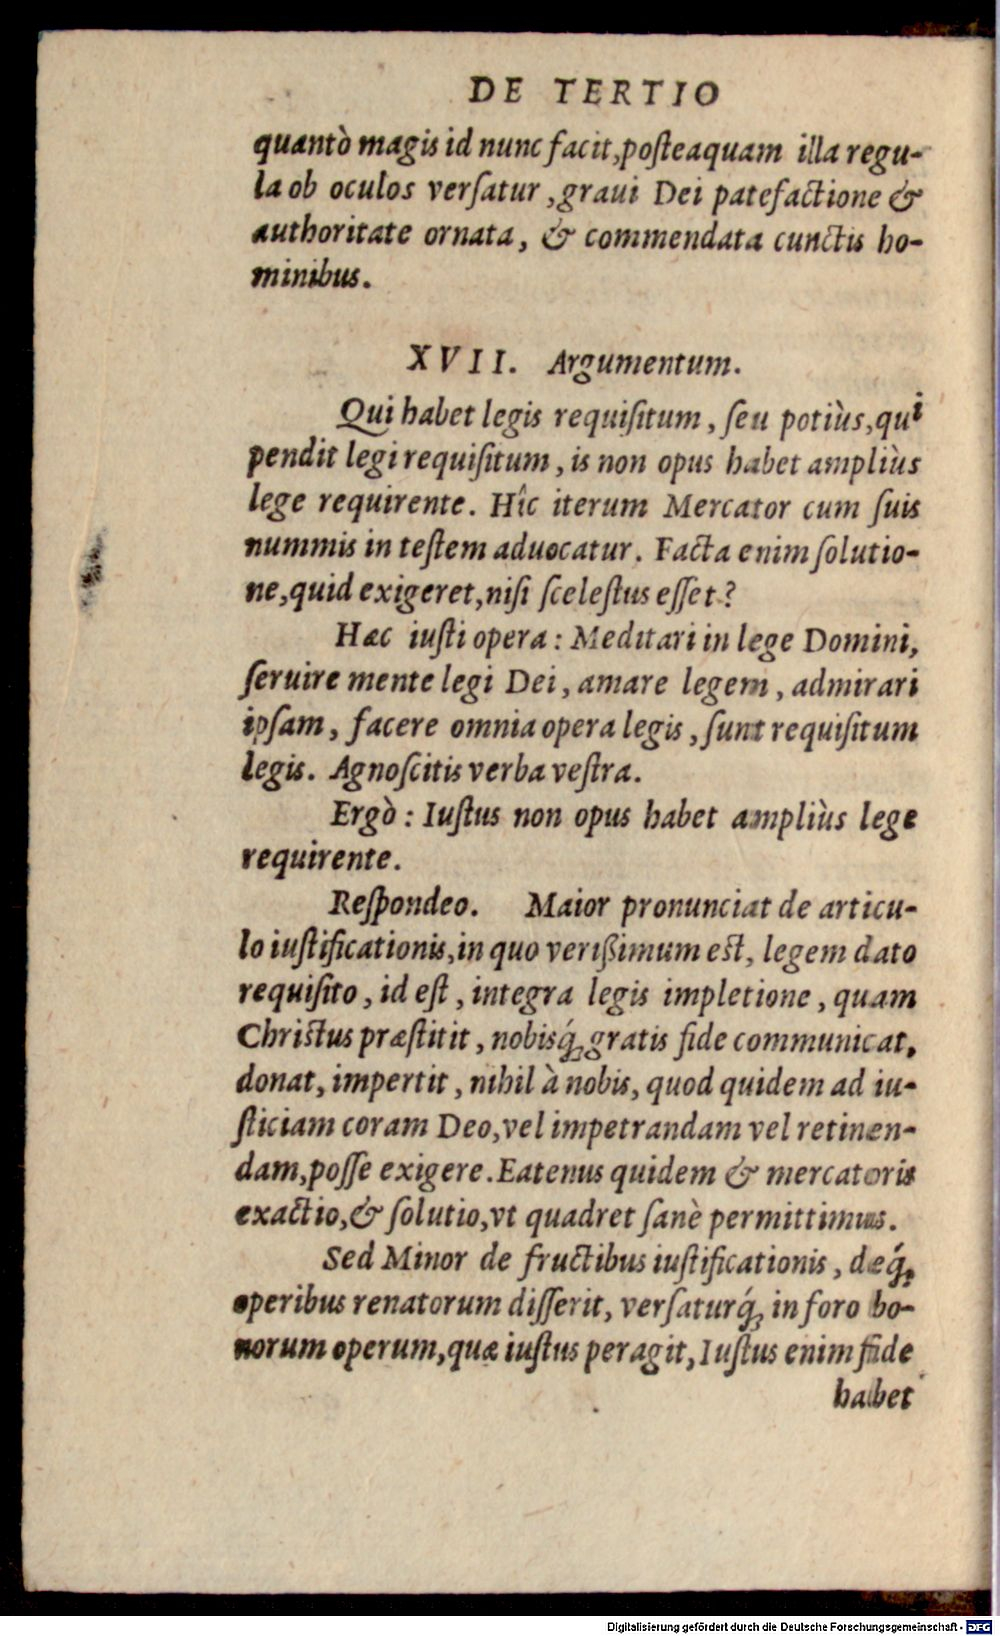 DE TERTIO
quantò magis id nunc facit,posteaquam illa regu-
la ob oculos versatur ,graui Dei patefactione &
authoritate ornata, & commendata cunctis ho-
minibus.
XVII. Argumentum.
Qui habet legis requisitum, seu potiùs,qui
pendit legi requisitum, is non opus habet ampliùs
lege requirente. Hîc iterum Mercator cum suis
nummis in testem aduocatur. Facta enim solutio-
ne,quid exigeret,nisi scelestus esset?
Hæc iusti opera: Meditari in lege Domini,
seruire mente legi Dei, amare legem, admirari
ipsam, facere omnia opera legis, sunt requisitum
legis. Agnoscitis verba vestra.
Ergò: Iustus non opus habet ampliùs lege
requirente.
Respondeo. Maior pronunciat de articu-
lo iustificationis,in quo verißimum est, legem dato
requisito, id est, integra legis impletione, quam
Christus præstitit, nobisq́; gratis fide communicat,
donat, impertit, nihil à nobis, quod quidem ad iu-
sticiam coram Deo,vel impetrandam vel retinen-
dam,posse exigere. Eatenus quidem & mercatoris
exactio,& solutio,vt quadret sanè permittimus.
Sed Minor de fructibus iustificationis, deq́;
operibus renatorum disserit, versaturq́; in foro bo-
norum operum,quæ iustus peragit, Iustus enim fide
habet
Digitalisierung gefördert durch die Deutsche Forschungsgemeinschaft - DFG